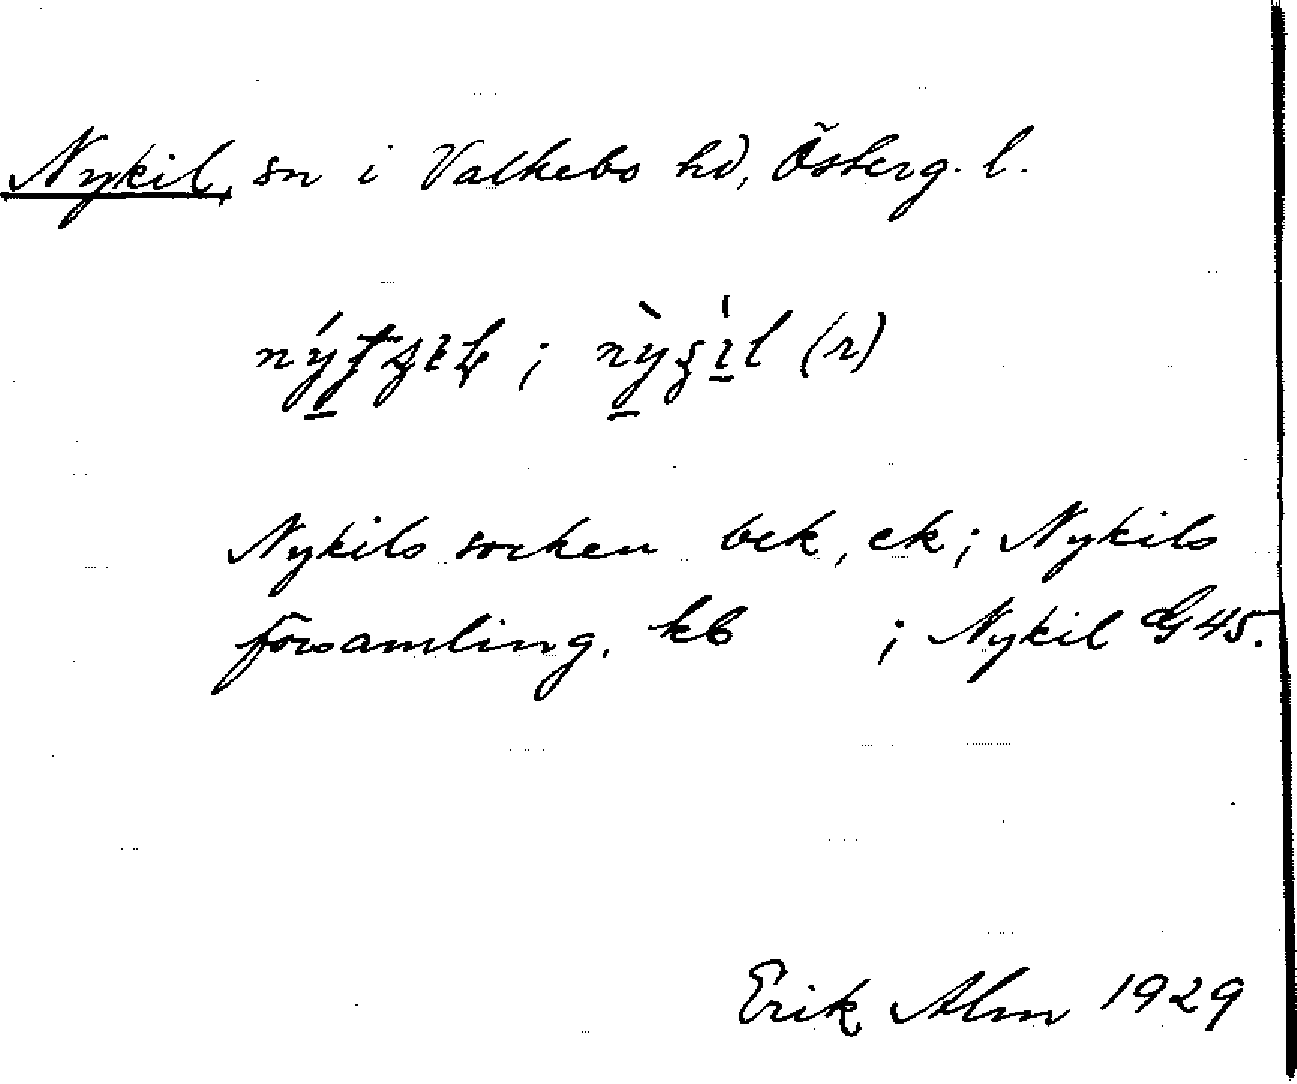 Nykil, sn i Valkebo hd, Österg. l.
; (r)
Nykils socken bek, ek; Nykils
församling, kb ; Nykil G 45.
Erik Alm 1929